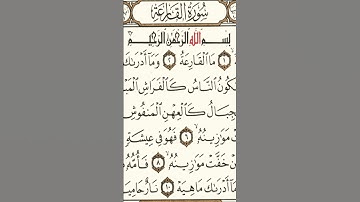 سُورَةُ القَارِعَةِ
بِسْمِ اللَّهِ الرَّحْمَٰنِ الرَّحِيمِ
١ مَا الْقَارِعَةُ ٢ وَمَا أَدْرَىٰكَ
كُونُ النَّاسُ كَالْفَرَاشِ الْمَبْ
جِبَالُ كَالْعِهْنِ الْمَنفُوشِ
مَوَٰزِينُهُ ٦ فَهُوَ فِي عِيشَةٍ
خَفَّتْ مَوَٰزِينُهُ ٨ فَأُمُّهُ
مَا أَدْرَىٰكَ مَا هِيَهْ ١٠ نَارٌ حَامِيَ